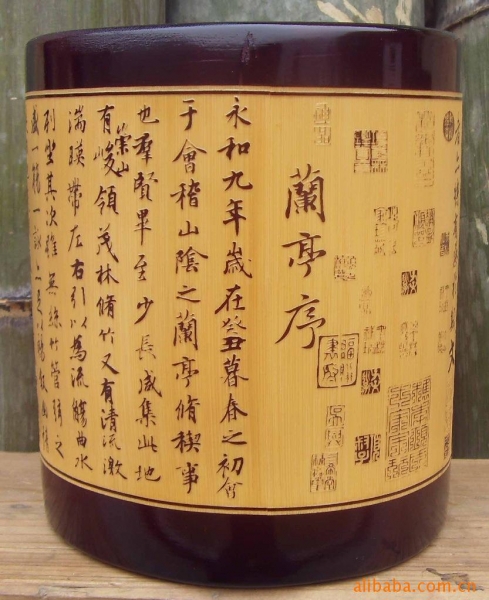 蘭亭序
永和九年歲在癸丑暮春之初會
于會稽山陰之蘭亭脩稧事
也羣賢畢至少長咸集此地
有崇山峻領茂林脩竹又有清流激
湍暎帶左右引以為流觴曲水
列坐其次雖無絲竹管弦之
盛一觴一詠亦足以暢敘幽情
alibaba.com.cn